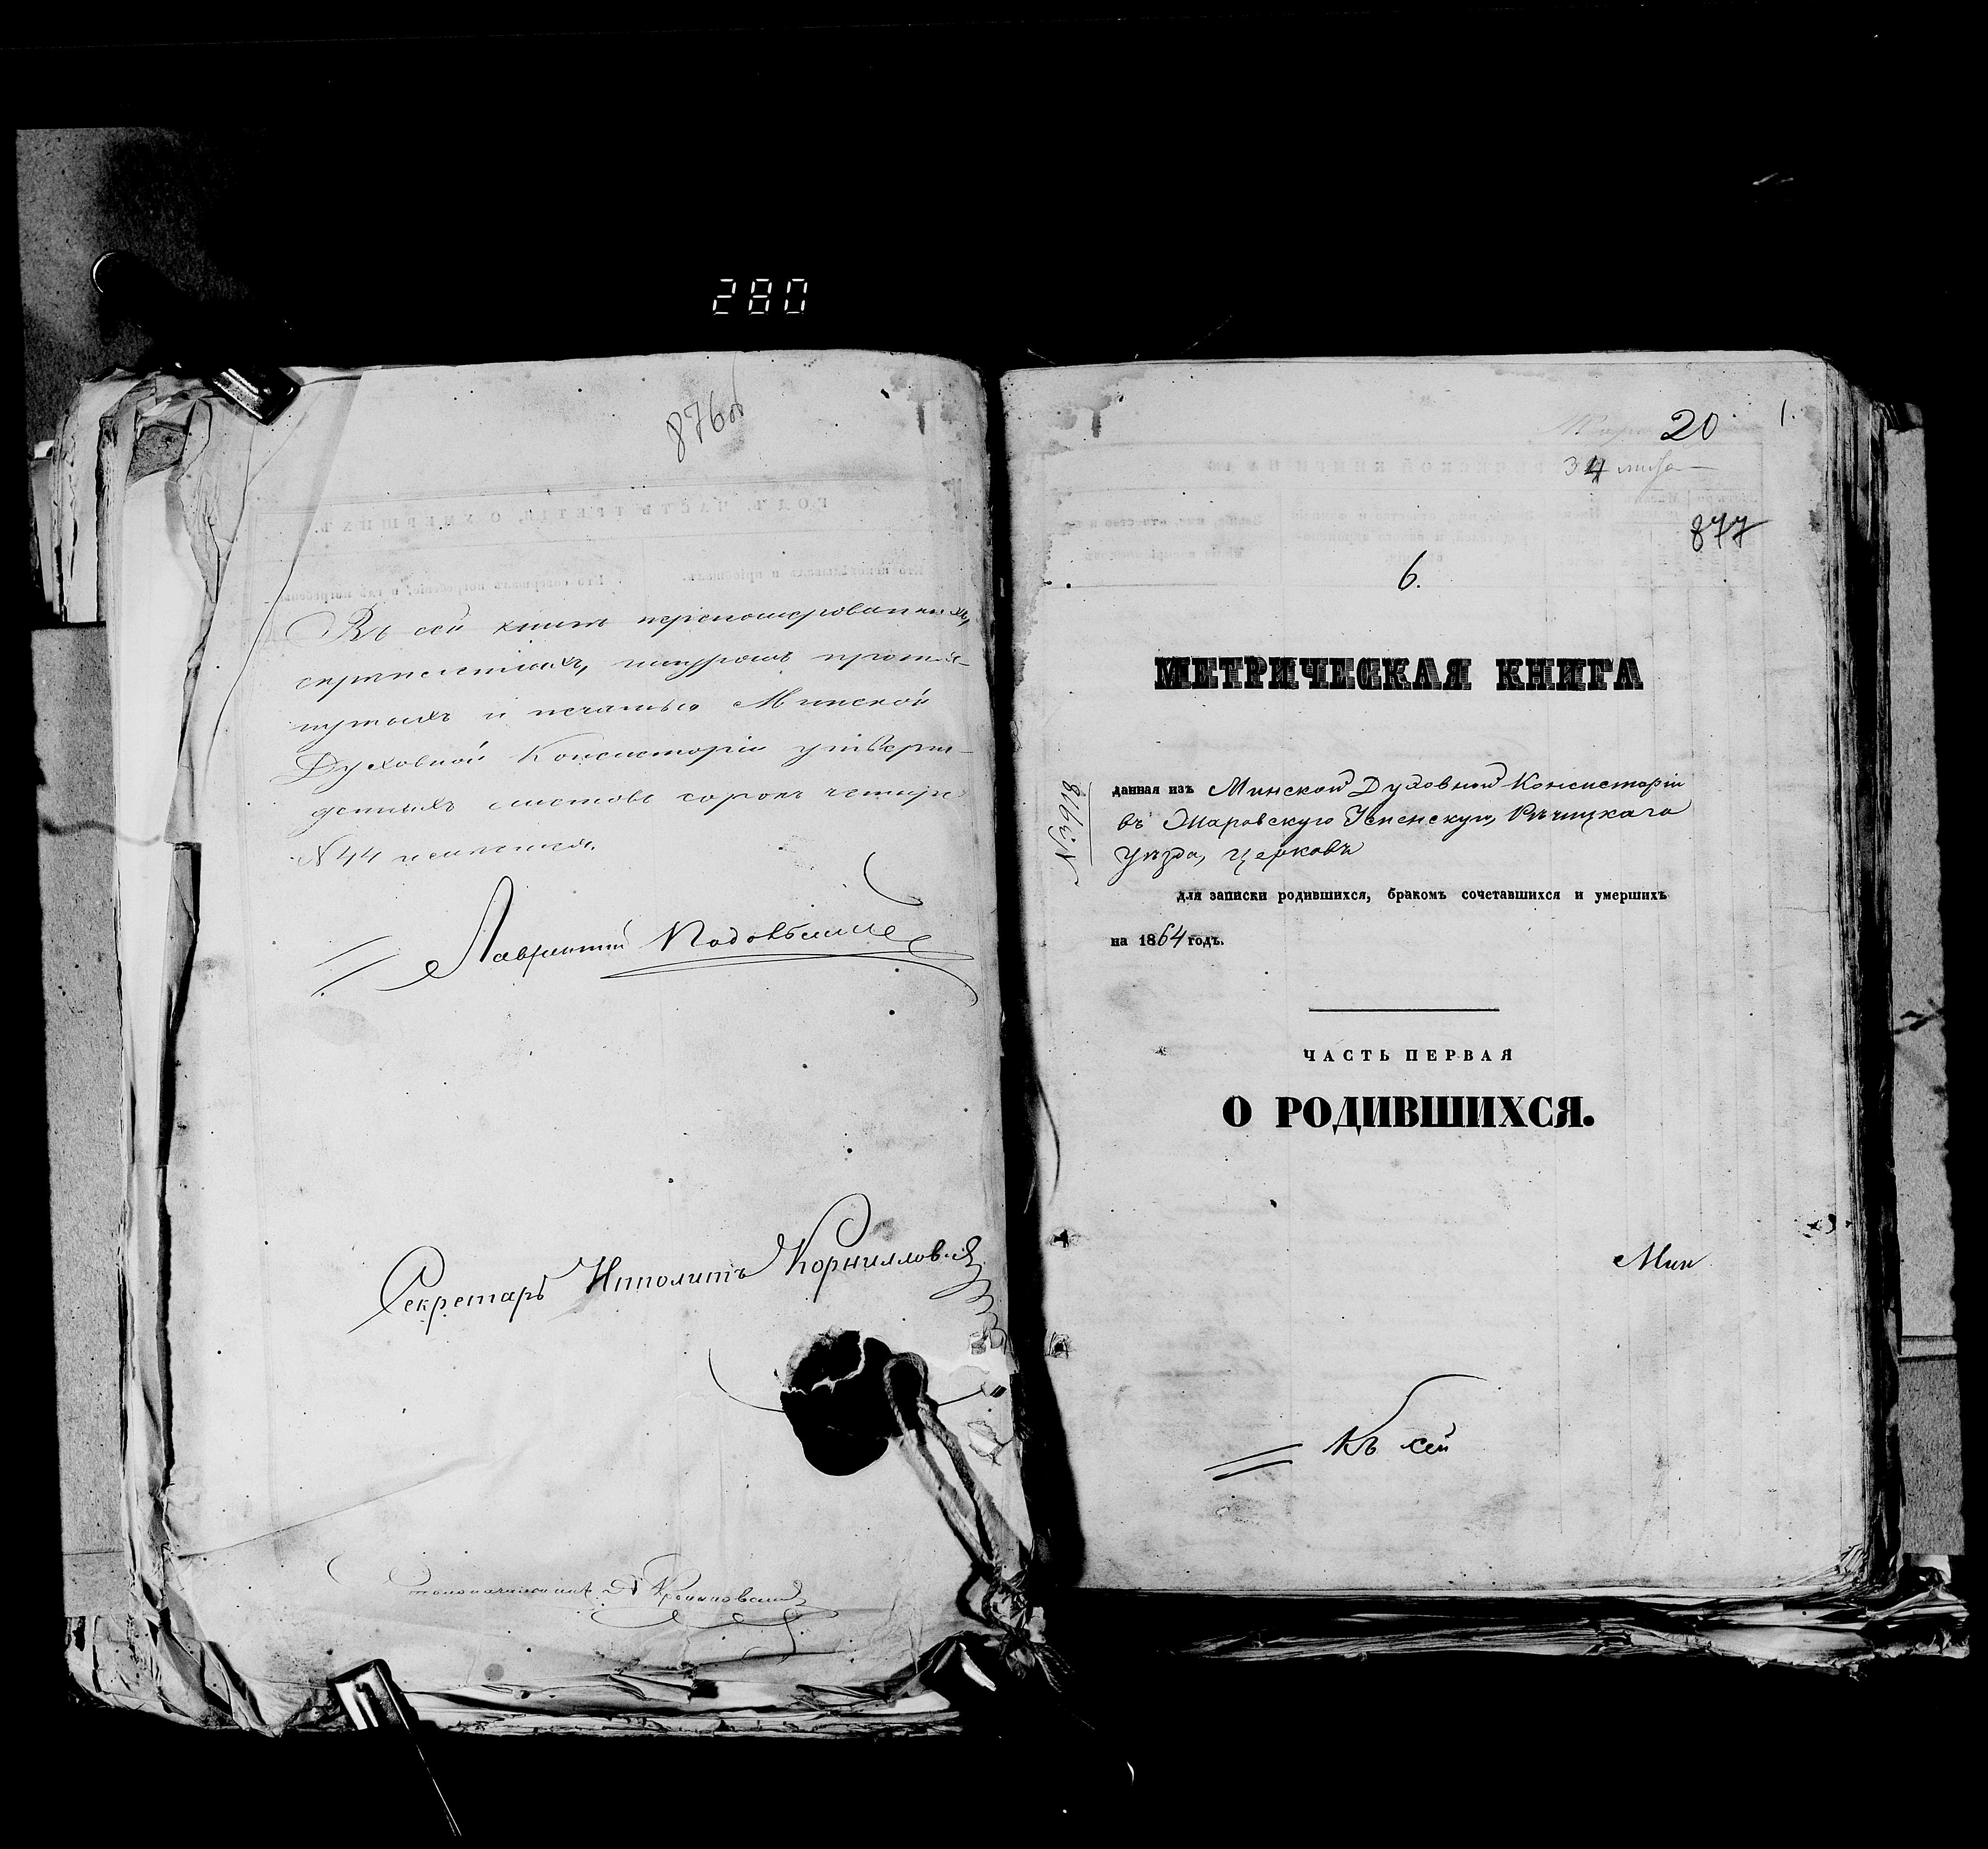 280
876об
Въ сей книгѣ перенумерованныхъ,
скрѣпленныхъ, шнуромъ протя-
нутыхъ и печатью Минской
Духовной Консисторіи утверж-
денныхъ листовъ сорокъ четыре
№ 44 
Лаврентій
Секретарь Ипполитъ Корниллов
Столоначальникъ
20
1.
34 листа
877
6.
МЕТРИЧЕСКАЯ КНИГА
№ 3918
данная изъ Минской Духовной Консисторіи
въ Успенскую, Рѣчицкаго
Уѣзда, церковь
для записки родившихся, бракомъ сочетавшихся и умершихъ
на 1864 годъ.
ЧАСТЬ ПЕРВАЯ
О РОДИВШИХСЯ.
Мин
Къ сей